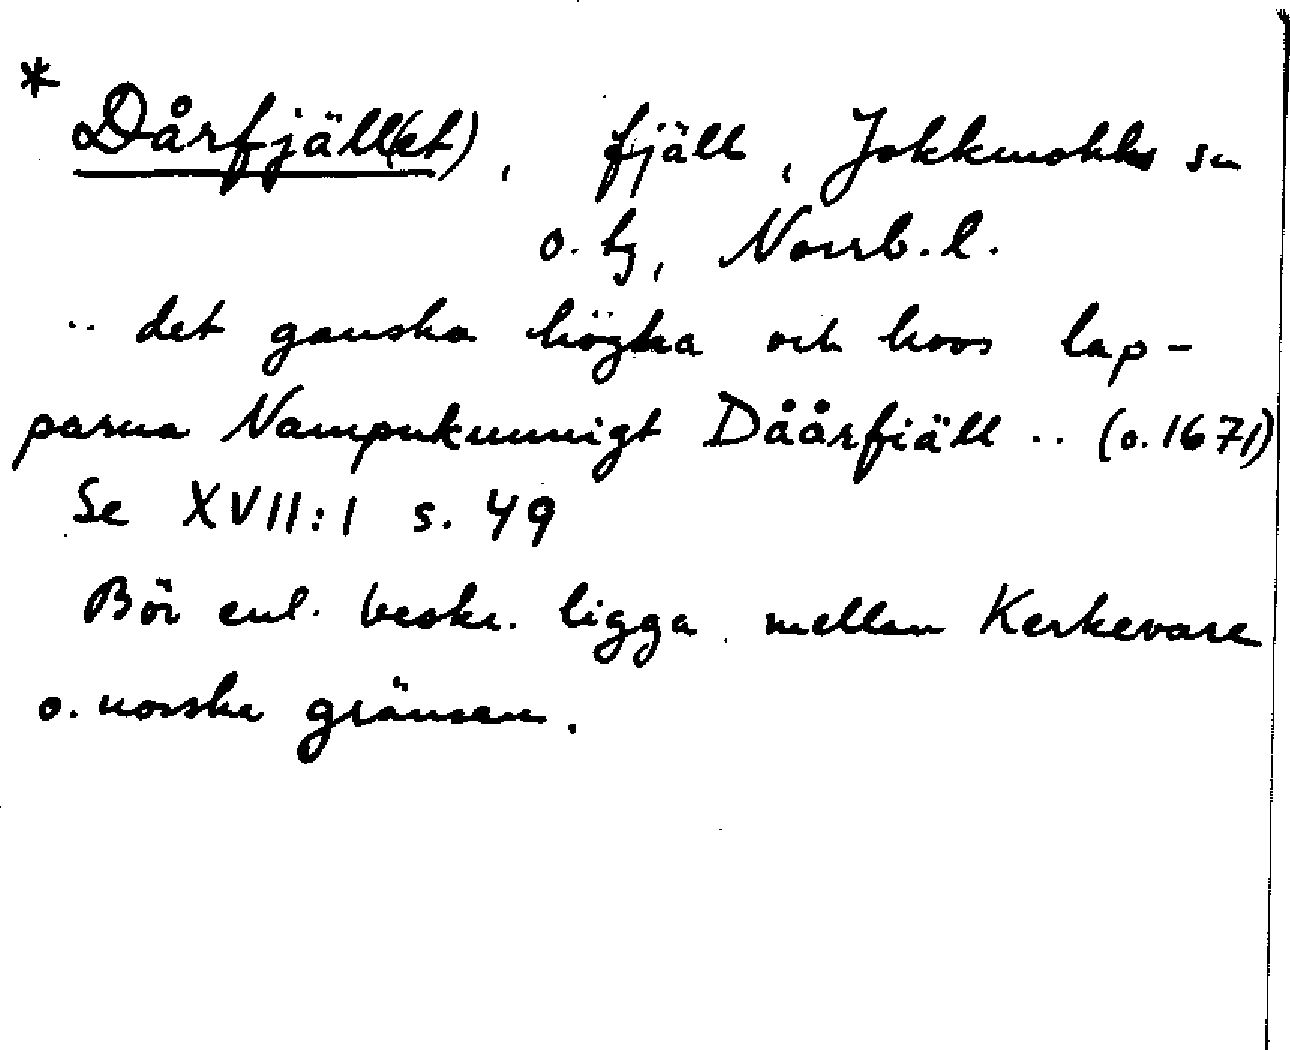 * Dårfjäll(et), fjäll, Jokkmokks sn
o. hg, Norrb. l.
.. det ganska högha och hoos lap-
parna Nampnkunnigt Däårfiäll .. (o. 1671)
Se XVII:1 s. 49
Bör enl. beskr. ligga mellan Kerkevare
o. norska gränsen.